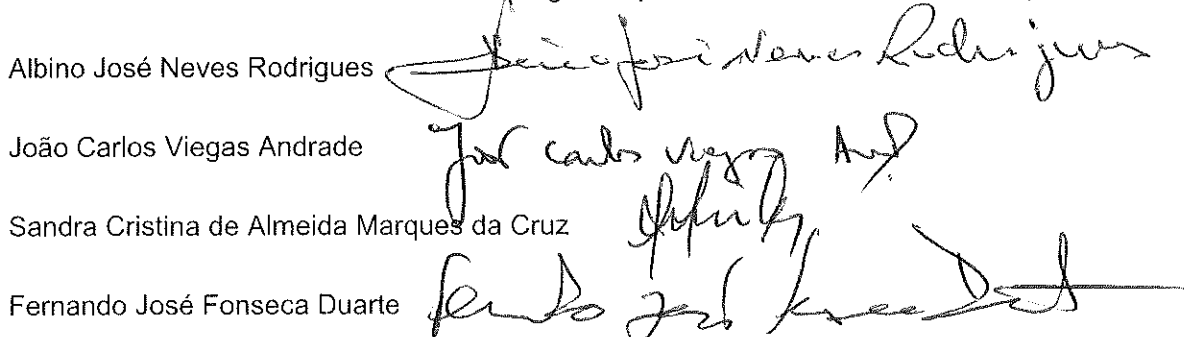 Albino José Neves Rodrigues José Neves Rodrigues
João Carlos Viegas Andrade Carlos Viegas
Sandra Cristina de Almeida Marques da Cruz
Fernando José Fonseca Duarte José